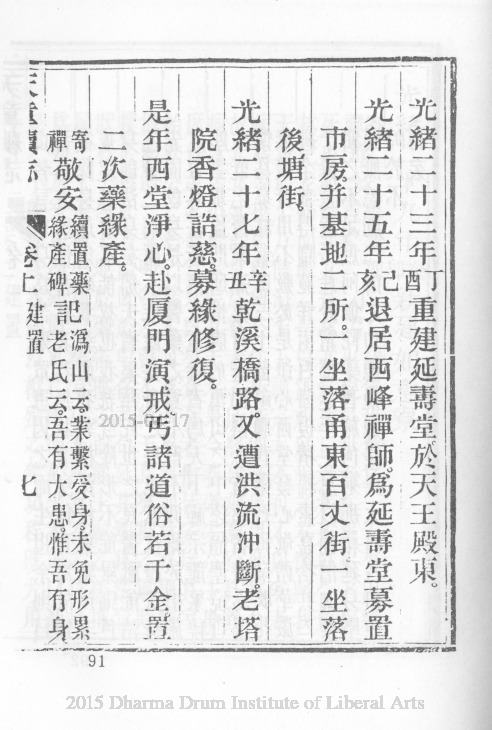 光緒二十三年丁酉重建延壽堂於天王殿東。
光緒二十五年己亥退居西峰禪師。爲延壽堂募置
市房并基地二所。一坐落甬東百丈街。一坐落
後塘街。
光緒二十七年辛丑乾溪橋路。又遭洪流冲斷。老塔
院香燈誥慈。募緣修復。
是年西堂淨心。赴厦門演戒。丐諸道俗若干金。置
二次藥緣產。
寄禪敬安續置藥緣產碑記潙山云。業繫受身。未免形累
老氏云。吾有大患。惟吾有身
天童續志
卷上建置
七
2015-07-17
91
2015 Dharma Drum Institute of Liberal Arts